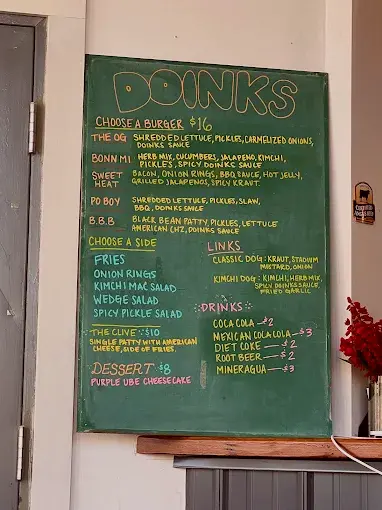 DOINKS
CHOOSE A BURGER $16
THE OG SHREDDED LETTUCE, PICKLES, CARMELIZED ONIONS,
DOINKS SAUCE
BONN MI HERB MIX, CUCUMBERS, JALAPENO, KIMCHI,
PICKLES, SPICY DOINKS SAUCE
SWEET HEAT BACON, ONION RINGS, BBQ SAUCE, HOT JELLY,
GRILLED JALAPENOS, SPICY KRAUT
PO BOY SHREDDED LETTUCE, PICKLES, SLAW,
BBQ, DOINKS SAUCE
B.B.B BLACK BEAN PATTY, PICKLES, LETTUCE
AMERICAN CHZ, DOINKS SAUCE
CHOOSE A SIDE
FRIES
ONION RINGS
KIMCHI MAC SALAD
WEDGE SALAD
SPICY PICKLE SALAD
THE CLIVE $10
SINGLE PATTY WITH AMERICAN
CHEESE, SIDE OF FRIES.
DESSERT $8
PURPLE UBE CHEESECAKE
LINKS
CLASSIC DOG: KRAUT, STADIUM
MUSTARD, ONION
KIMCHI DOG: KIMCHI, HERB MIX,
SPICY DOINKS SAUCE,
FRIED GARLIC
DRINKS
COCA COLA - $2
MEXICAN COCA COLA - $3
DIET COKE - $2
ROOT BEER - $2
MINERAGUA - $3